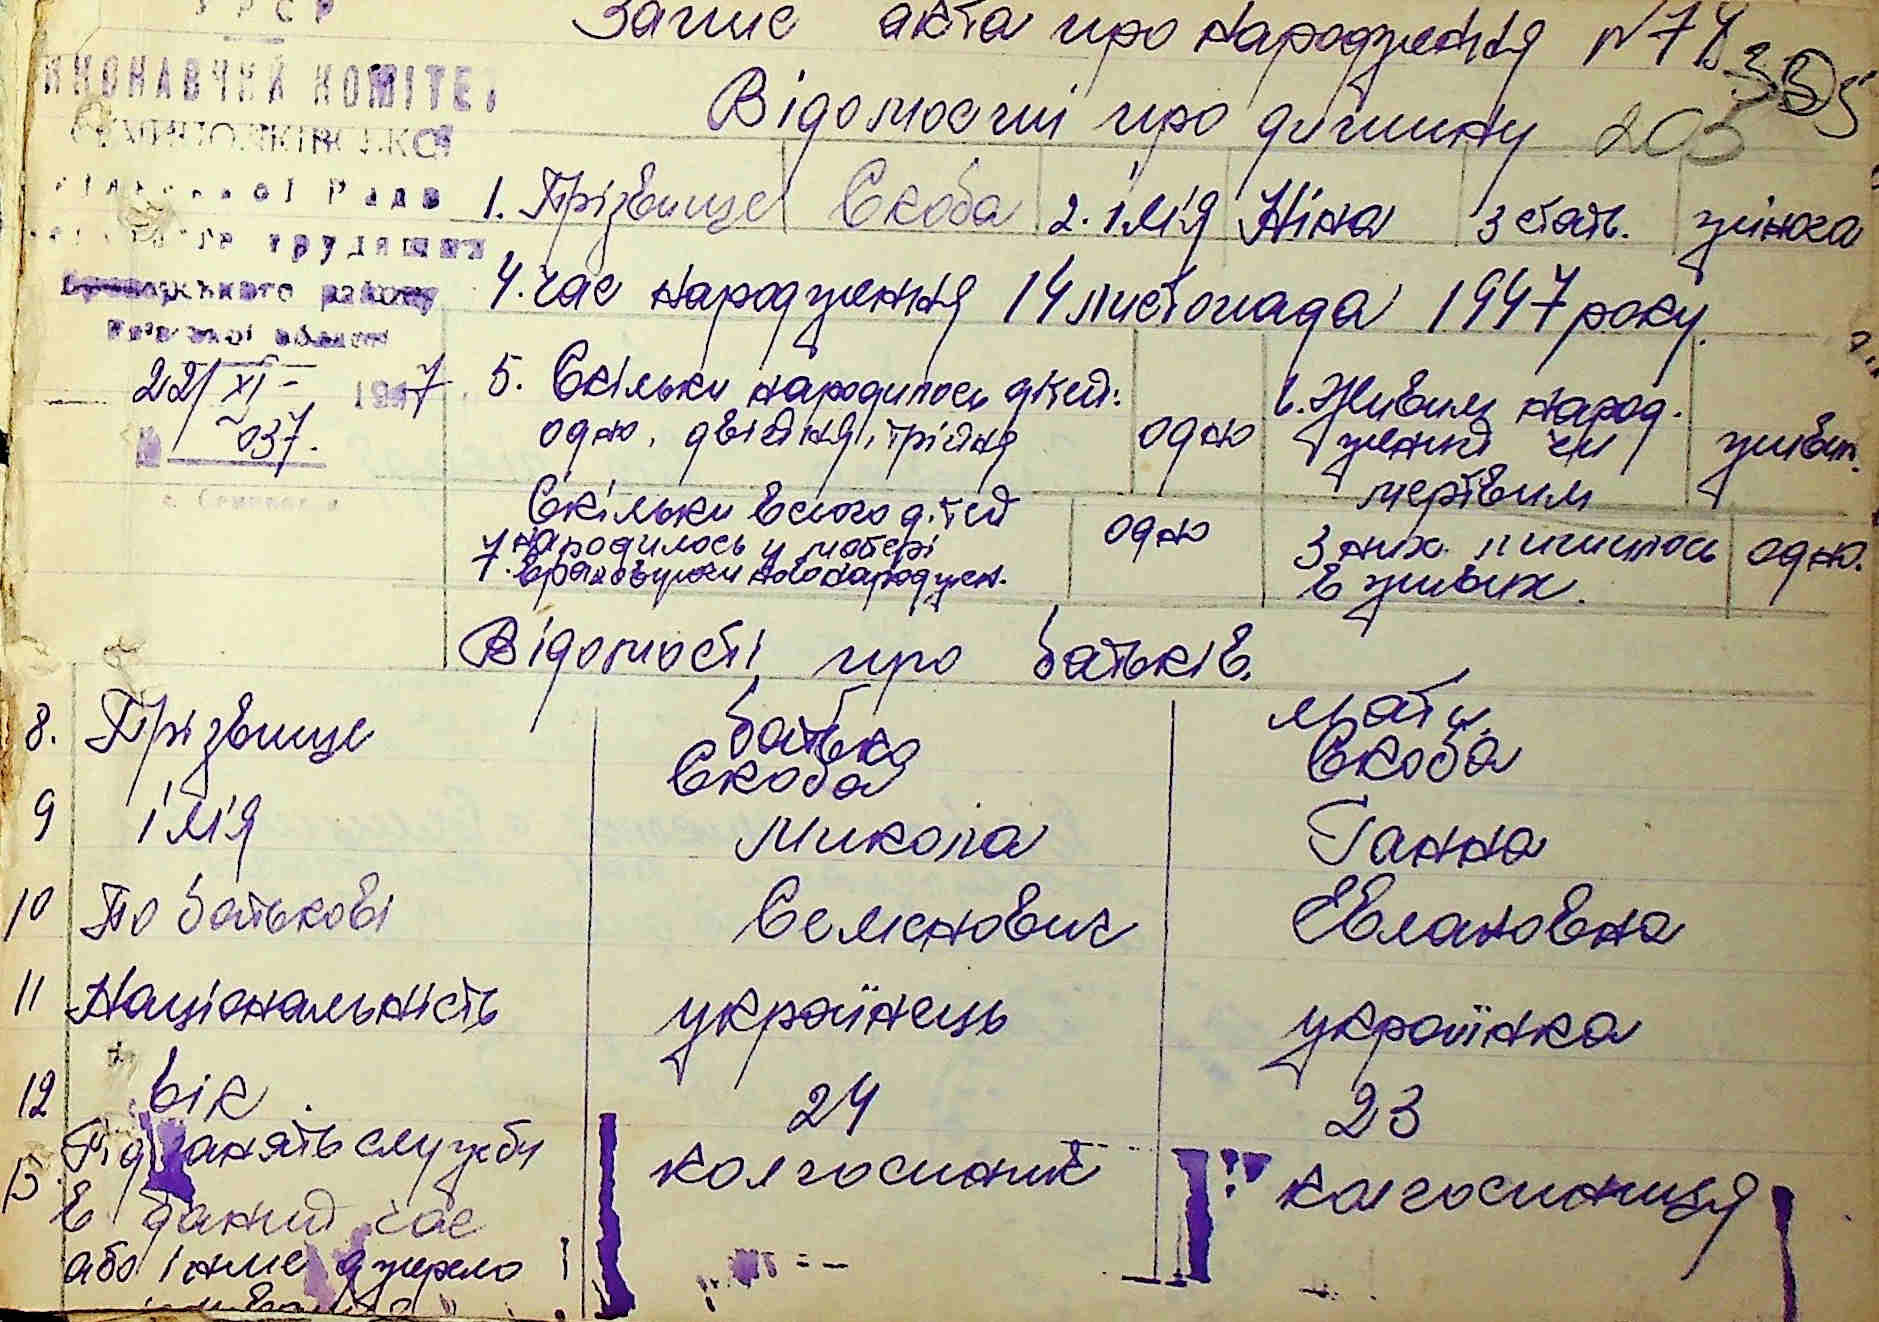 УРСР
Запис акта про народження №78
335
ВИКОНАВЧИЙ КОМІТЕТ
Відомості про дитину 205
Ради
трудящих
району
області
22/XI - 1947
037.
1. Прізвище Скоба 2. ім'я Ніна 3 стать. жіноча
4. час народження 14 листопада 1947 року.
5. Скільки народилось дітей: одно, двійня, трійня одно
6. Живим народженні чи мертвим живим.
7. Скільки всього дітей народилось у матері враховуючи новонароджен. одно
З них лишилось в живих. одно.
Відомості про батьків.
батько мати
8. Прізвище Скоба Скоба
9 ім'я Микола Ганна
10 По батькові Семенович Євлановна
11 Національність українець українка
12 вік 24 23
13. Рід занять служби в даний час або інше джерело
колгоспник колгоспниця